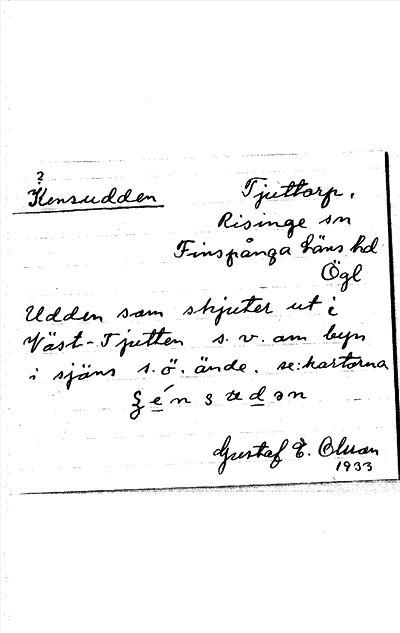 ?
Kensudden
Tjuttorp,
Risinge sn
Finspånga läns hd
Ögl
Udden som skjuter ut i
Väst-Tjutten s.v. om byn
i sjöns s.ö. ände. se: kartorna
Gustaf E. Olsson
1933